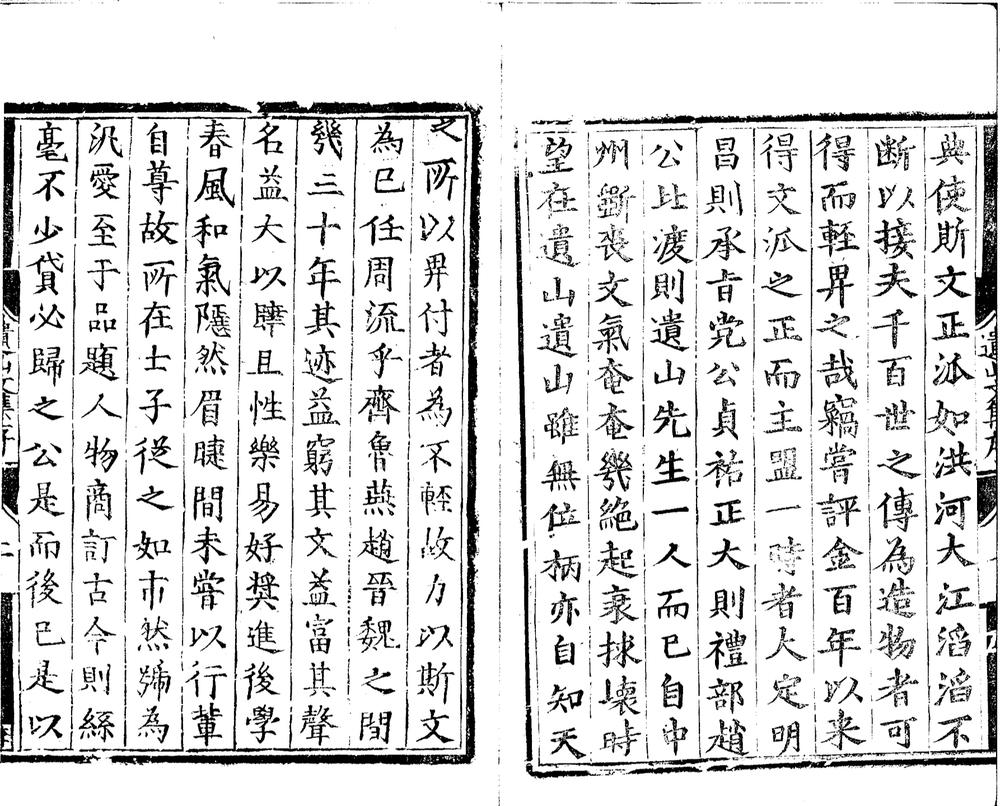 典使斯文正泒如洪河大江滔滔不
断以接夫千百世之傳為造物者可
得而輕畀之哉竊嘗評金百年以来
得文泒之正而主盟一時者大定明
昌則承旨党公貞祐正大則禮部趙
公比渡則遺山先生一人而已自中
州斵喪文氣奄奄幾絕起衰捄壞時
望在遺山遺山雖無位柄亦自知天
之所以畀付者為不輕故力以斯文
為已任周流乎齊魯燕趙晉魏之間
幾三十年其迹益窮其文益富其聲
名益大以肆且性樂易好奬進後學
春風和氣隱然眉睫間未嘗以行輩
自尊故所在士子從之如市然號為
汎愛至于品題人物商訂古今則絲
毫不少貸必歸之公是而後已是以
遺山文集序